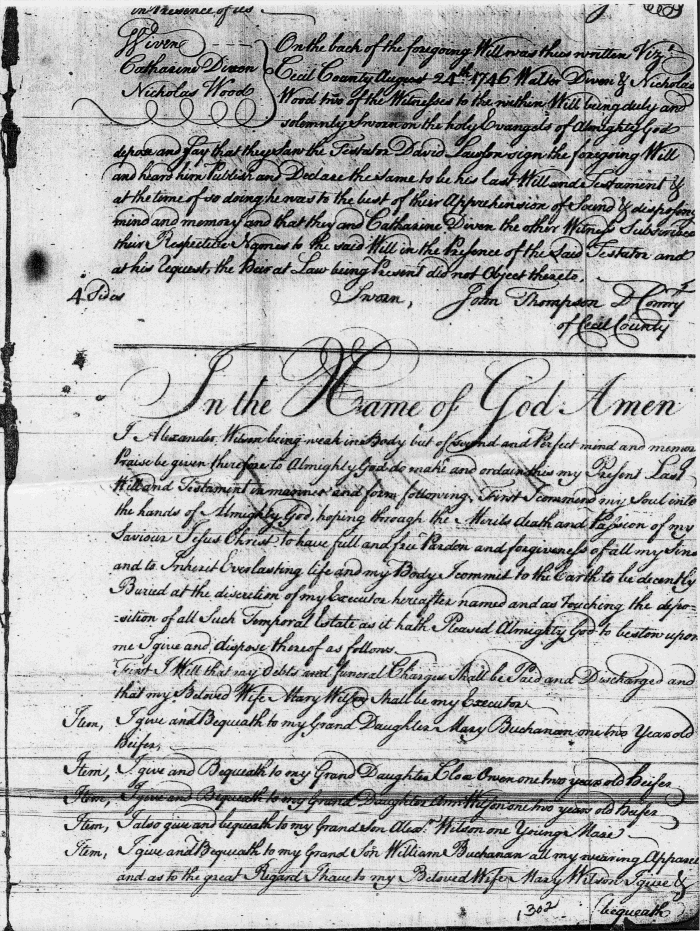 in Presence of us
W Diven
Catharine Diven
Nicholas Wood
On the back of the foregoing Will was thus written Vizt
Cecil County August 24th 1746 Walter Diven & Nicholas
Wood two of the Witnesses to the within Will being duly and
solemnly Sworn on the holy Evangels of Almighty God
depose and Say that they Saw the Testator David Lawson sign the foregoing Will
and heard him Publish and Declare the same to be his last Will and Testament &
at the time of so doing he was to the best of their Apprehension of Sound & disposing
mind and memory and that they and Catharine Diven the other Witness Subscribed
their Respective Names to the said Will in the Presence of the Said Testator and
at his Request, the Heir at Law being Present did not Object thereto.
4 Sides Sworn, John Thompson D Comry
of Cecil County
In the Name of God Amen
I Alexander Wilson being weak in Body but of sound and Perfect mind and memor
Praise be given therefore to Almighty God do make and ordain this my Present Last
Will and Testament in manner and form following, First I commend my Soul into
the hands of Almighty God, hoping through the Merits death and Passion of my
Saviour Jesus Christ to have full and free Pardon and forgiveness of all my Sins
and to Inherit Everlasting life and my Body I commit to the Earth to be decently
Buried at the discretion of my Executor hereafter named and as touching the depo-
-sition of all Such Temporal Estate as it hath Pleased Almighty God to bestow upon
me I give and dispose thereof as follows.
First I Will that my Debts and funeral Charges Shall be Paid and Discharged and
that my Beloved Wife Mary Wilson Shall be my Executor
Item, I give and Bequeath to my Grand Daughter Mary Buchanan one two Years old
Heifer,
Item, I give and Bequeath to my Grand Daughter Cloe Owen one two years old Heifer
Item, I give and Bequeath to my Grand Daughter Ann Wilson one two years old Heifer
Item, I also give and bequeath to my Grand Son Alexr. Wilson one Younge Mare
Item, I give and Bequeath to my Grand Son William Buchanan all my wearing Apparel
and as to the great Regard I have to my Beloved Wife Mary Wilson I give &
1302 bequeath